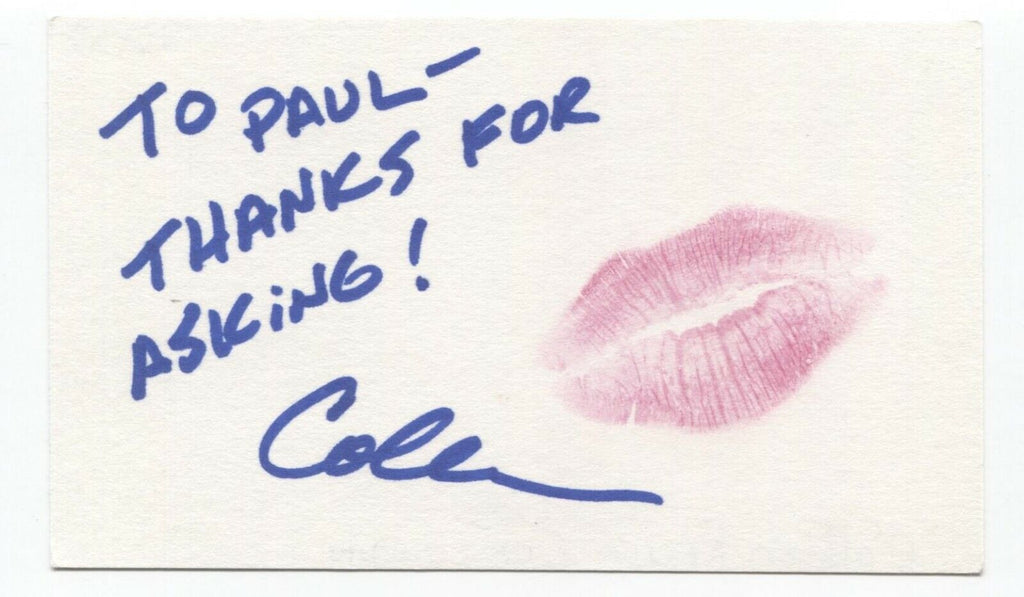 TO PAUL—
THANKS FOR
ASKiNG!
Cole